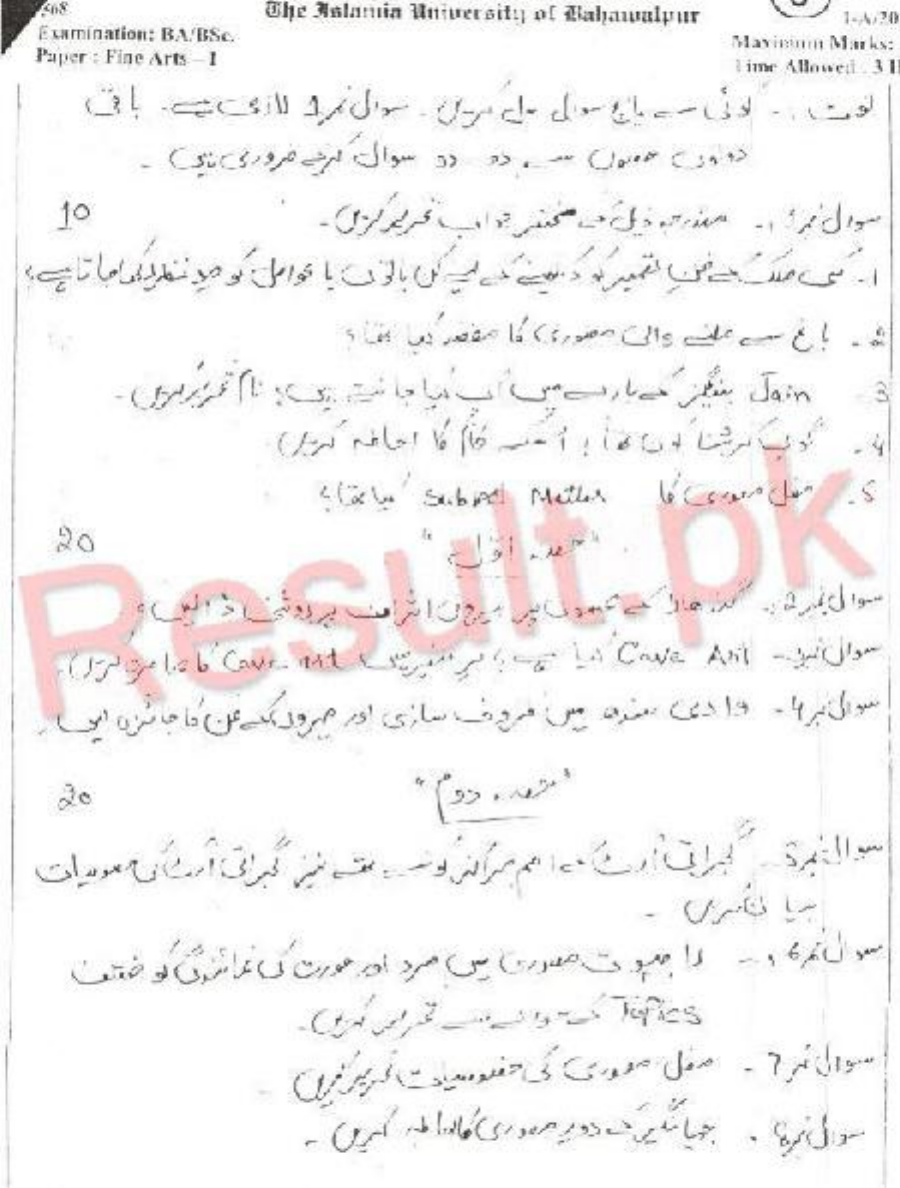 568
The Islamia University of Bahawalpur
1-A/20
Examination: BA/BSc.
Maximum Marks:
Paper : Fine Arts – I
Time Allowed : 3 H
نوٹ :- کوئی سے پانچ سوال حل کریں۔ سوال نمبر 1 لازمی ہے۔ باقی
دونوں حصوں سے دو دو سوال کرنے ضروری ہیں۔
سوال نمبر 1:- مندرجہ ذیل کے مختصر جواب تحریر کریں۔ 10
1۔ کسی ملک کے فنِ تعمیر کو دیکھنے کے لیے کن باتوں یا عوامل کو مدِ نظر رکھا جاتا ہے؟
2۔ باغ سے ملنے والی مصوری کا مقصد کیا تھا؟
3 Jain پینٹنگز کے بارے میں آپ کیا جانتے ہیں؟ نام تحریر کریں۔
4۔ کرشنا کون تھا؟ اسکے کام کا احاطہ کریں
5۔ مغل مصوری کا Subject Matter کیا تھا؟
"حصہ اول" 20
سوال نمبر 2:- گندھارا کے مجسموں پر بیرونی اثرات پر روشنی ڈالیں؟
سوال نمبر 3۔ Cave Art کیا ہے برصغیر میں Cave Art کا کریں۔
سوال نمبر 4۔ وادی سندھ میں ظروف سازی اور مہروں کے فن کا جائزہ لیں۔
"حصہ دوم" 20
سوال نمبر 5۔ گجراتی آرٹ کے اہم مراکز کونسے تھے نیز گجراتی آرٹ کی خصوصیات
بیان کریں۔
سوال نمبر 6:- راجپوت مصوری میں مرد اور عورت کی نمائندگی کو مختلف
Topics کے حوالے سے تحریر کریں۔
سوال نمبر 7۔ مغل مصوری کی خصوصیات تحریر کریں۔
سوال نمبر 8۔ جہانگیر کے دور مصوری کا احاطہ کریں۔
Result.pk